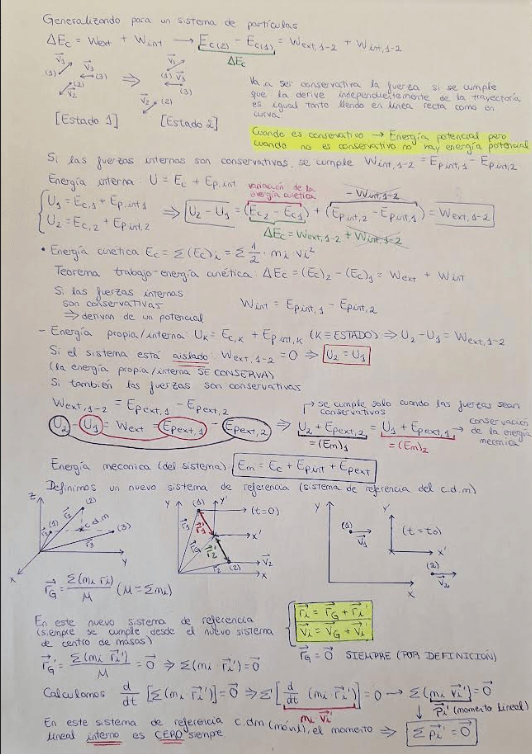 Generalizando para un sistema de partículas
ΔEc = Wext + Wint → Ec(2) - Ec(1) = Wext,1-2 + Wint,1-2
ΔEc
(1) v⃗1 (2) v⃗2 (3) v⃗3 ⇒ (1) v⃗1 (2) v⃗2 (3) v⃗3
[Estado 1] [Estado 2]
Va a ser conservativa la fuerza si se cumple
que la derive independientemente de la trayectoria
es igual tanto llendo en línea recta como en
curva.
Cuando es conservativo → Energía potencial pero
cuando no es conservativo no hay energía potencial
Si las fuerzas internas son conservativas, se cumple Wint,1-2 = Ep int,1 - Ep int,2
Energía interna U = Ec + Ep,int
variación de la energía cinética
- Wint,1-2
{ U1 = Ec,1 + Ep,int,1
U2 = Ec,2 + Ep,int,2 ⇒ U2 - U1 = (Ec2 - Ec1) + (Ep int,2 - Ep int,1) = Wext,1-2
ΔEc = Wext,1-2 + Wint,1-2
• Energía cinética Ec = Σ(Ec)i = Σ 1/2 · mi vi²
Teorema trabajo-energía cinética: ΔEc = (Ec)2 - (Ec)1 = Wext + Wint
Si las fuerzas internas
son conservativas
⇒ derivan de un potencial
Wint = Ep int,1 - Ep int,2
- Energía propia/interna: UK = Ec,K + Ep int,K (K = ESTADO) ⇒ U2 - U1 = Wext,1-2
Si el sistema está aislado: Wext,1-2 = 0 ⇒ U2 = U1
(la energía propia/interna SE CONSERVA)
Si también las fuerzas son conservativas
Wext,1-2 = Ep ext,1 - Ep ext,2
se cumple solo cuando las fuerzas sean
conservativas
U2 - U1 = Wext = Ep ext,1 - Ep ext,2 ⇒ U2 + Ep ext,2 = U1 + Ep ext,1 → conservación de la energía mecánica
= (Em)1 = (Em)2
Energía mecánica (del sistema) Em = Ec + Ep int + Ep ext
Definimos un nuevo sistema de referencia (sistema de referencia del c.d.m)
Z (1) (2) c.d.m (3) X Y
Y (1) Y' (t=0) x' v⃗2 (2) X
Y (1) v⃗1 Y' (t=t0) x' (2) v⃗2 X
r⃗G = Σ(mi r⃗i)/M (M = Σmi)
En este nuevo sistema de referencia
(siempre se cumple desde el nuevo sistema
de centro de masas)
r⃗i = r⃗G + r⃗i'
v⃗i = v⃗G + v⃗i'
r⃗G' = Σ(mi r⃗i')/M = 0⃗ ⇒ Σ(mi r⃗i') = 0⃗
r⃗G = 0⃗ SIEMPRE (POR DEFINICIÓN)
Calculamos d/dt [Σ(mi r⃗i')] = 0⃗ ⇒ Σ[d/dt (mi r⃗i')] = 0 → Σ(mi v⃗i') = 0⃗
mi v⃗i'
p⃗i' (momento lineal)
En este sistema de referencia c.d.m (móvil), el momento ⇒ Σp⃗i' = 0⃗
lineal interno es CERO siempre